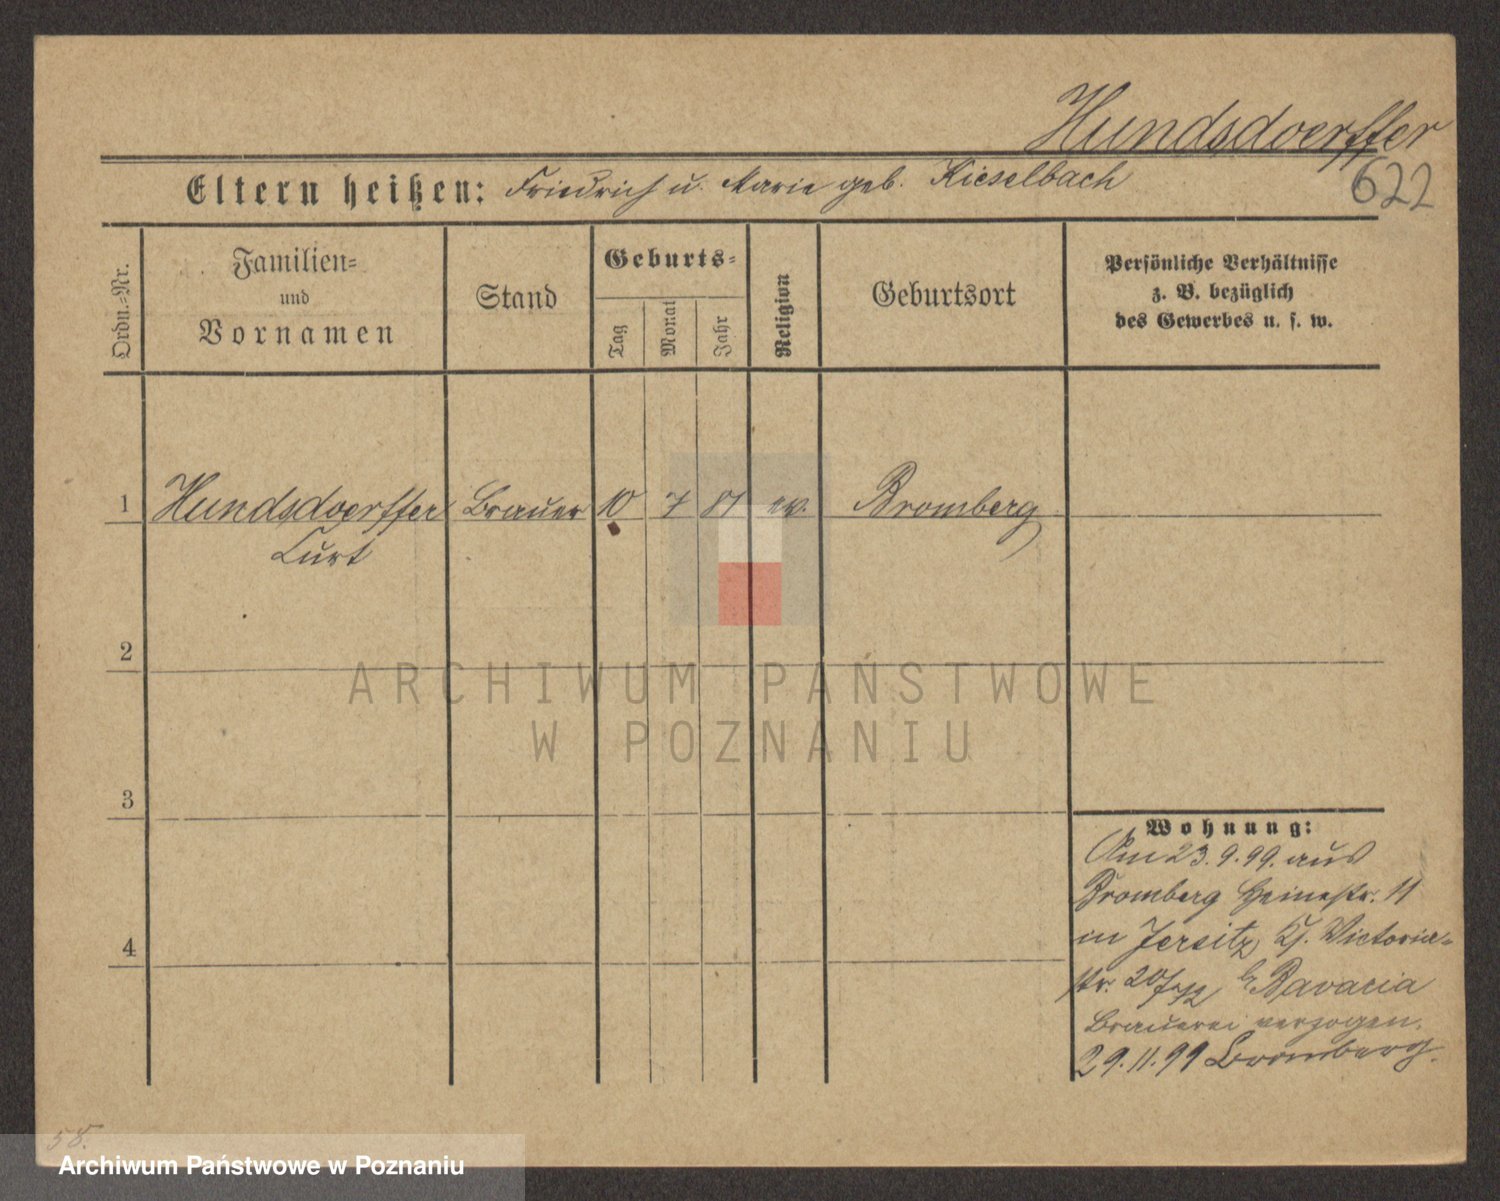 Hundsdoerffer
622
Eltern heißen: Friedrich u. Marie geb. Kieselbach
Ordn.-Nr.
Familien-
und
Vornamen
Stand
Geburts-
Tag
Monat
Jahr
Religion
Geburtsort
Persönliche Verhältnisse
z. B. bezüglich
des Gewerbes u. s. w.
1 Hundsdoerffer Brauer 10 7 81 ev. Bromberg
Curt
2
3
4
Wohnung:
Am 23.9.99. aus
Bromberg Heinestr. 11
in Jersitz, Victoria-
str. 20/ Bavaria
Brauerei verzogen.
29.11.99 Bromberg.
58.
ARCHIWUM PAŃSTWOWE
W POZNANIU
Archiwum Państwowe w Poznaniu